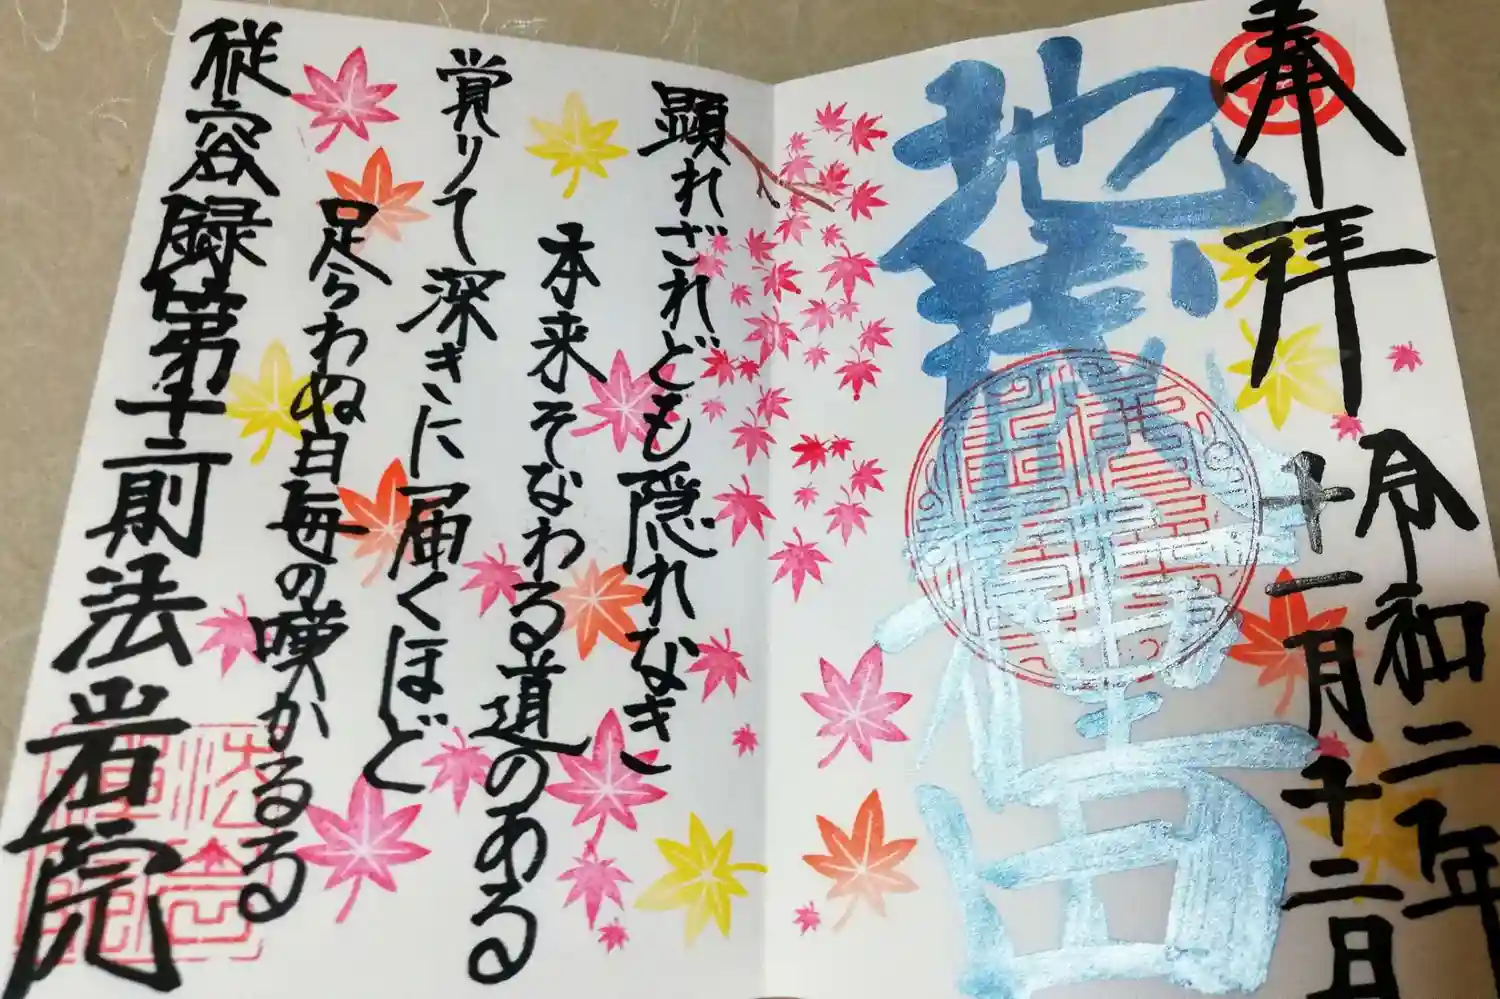 奉拝
令和二年
十一月十二日
地蔵種田
顕れざれども隠れなき
本来そなわる道のある
覚りて深きに届くほど
足らわぬ自每の嘆かるる
従容録第十二則法岩院